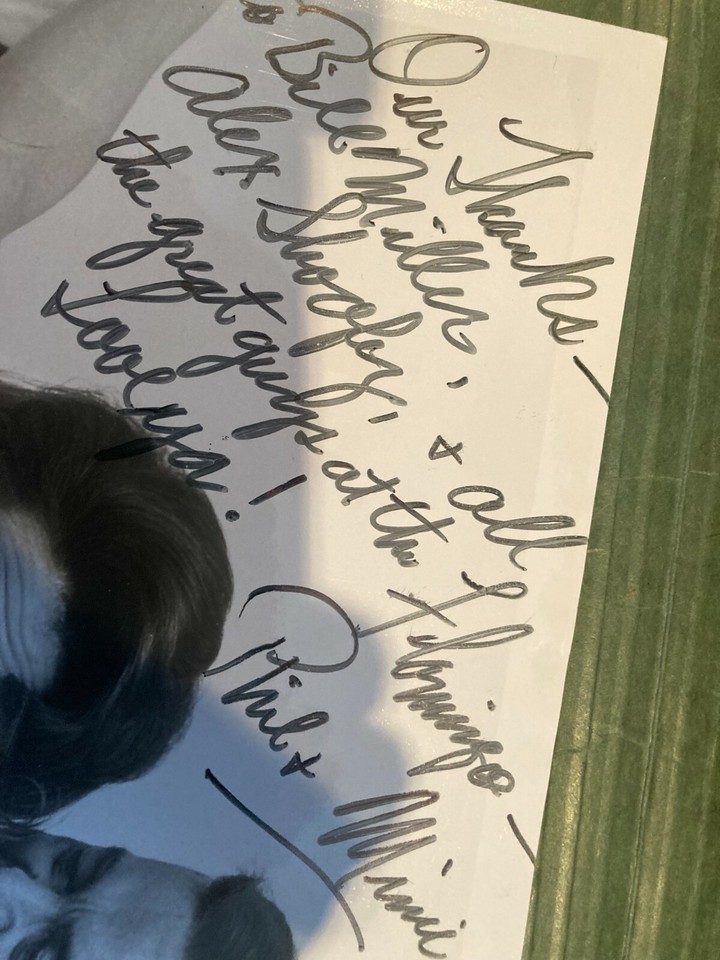 Our Thanks —
to Bill Miller,
Alex Shoofey, & all
the great guys at the Flamingo —
Love ya!
Phil &